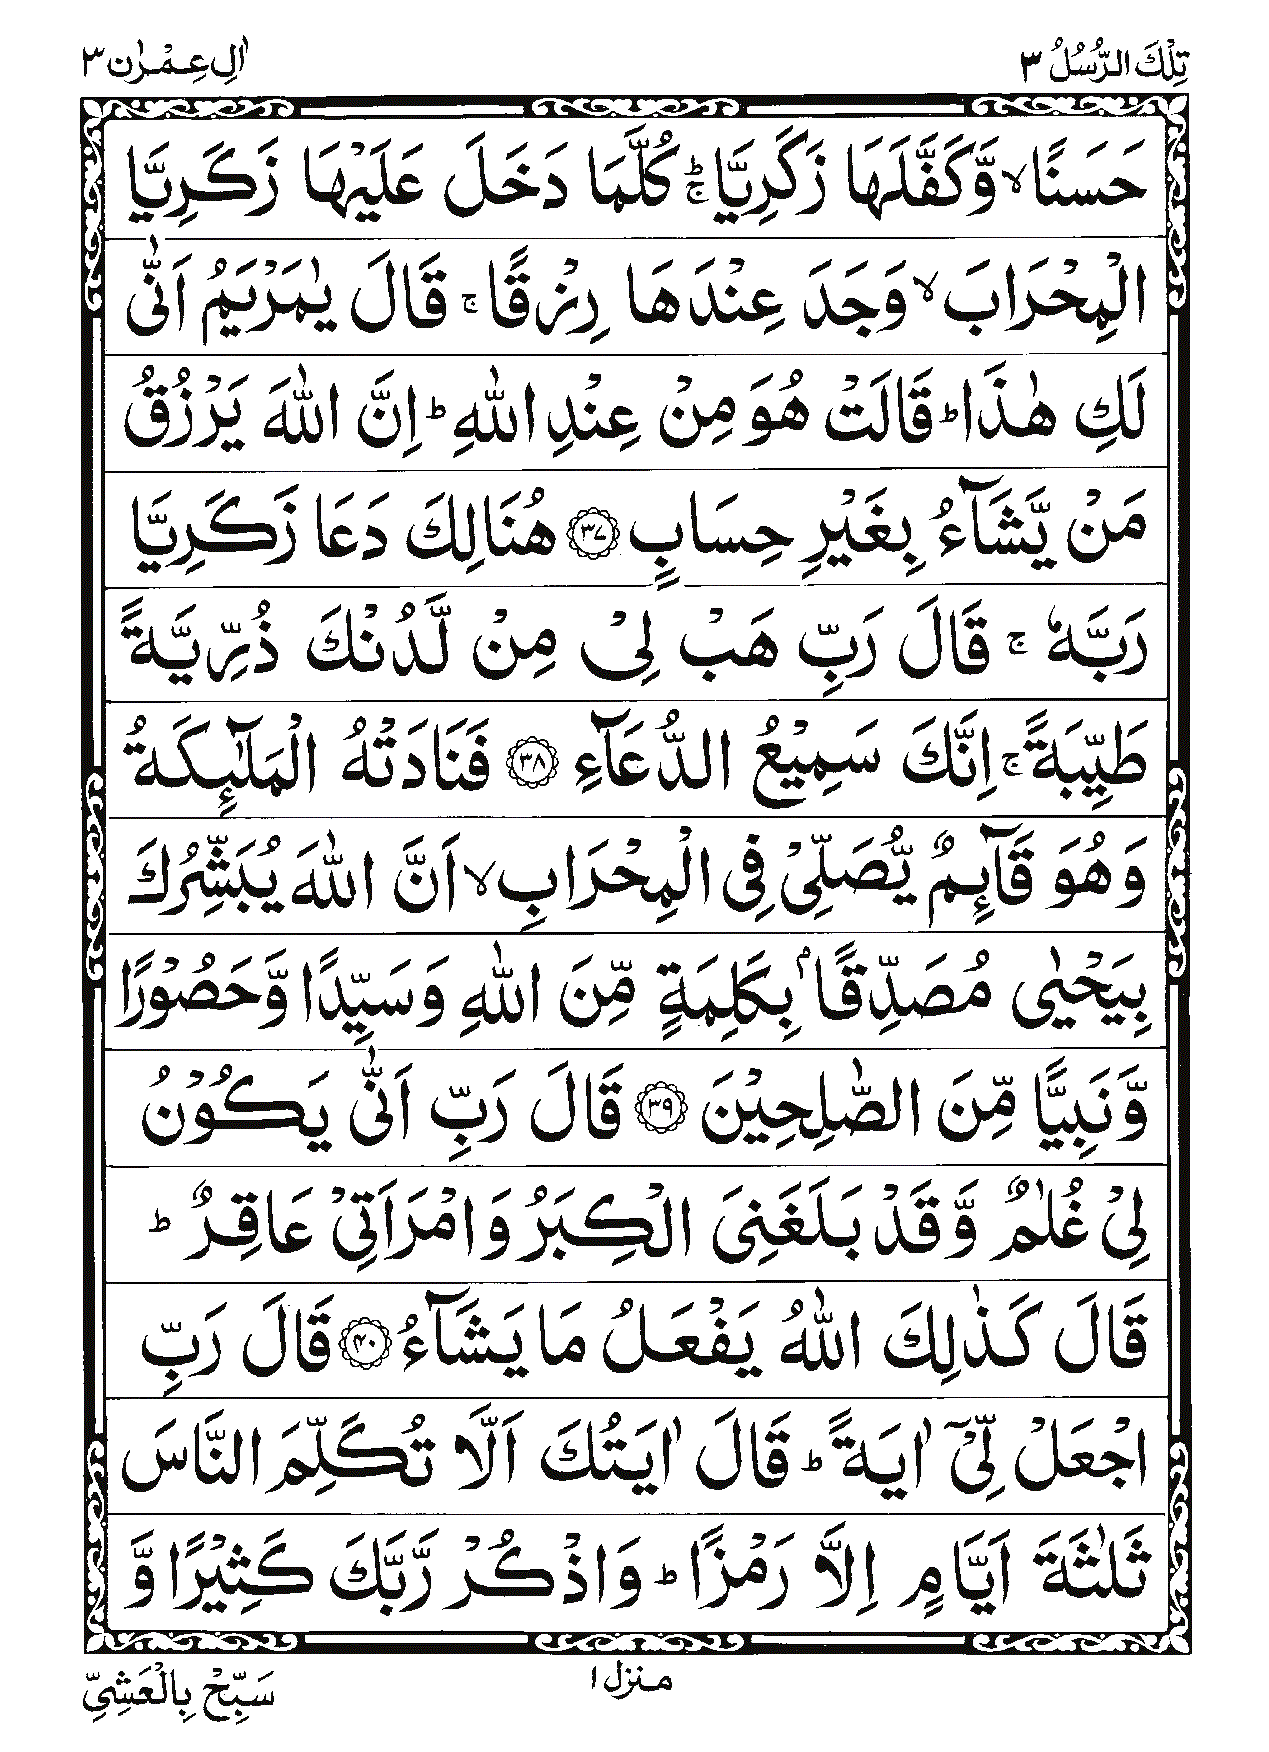 تِلْكَ الرُّسُلُ ٣
اٰلِ عِمْرٰن ٣
حَسَنًا ۙ وَّكَفَّلَهَا زَكَرِيَّا ۚؕ كُلَّمَا دَخَلَ عَلَيْهَا زَكَرِيَّا
الْمِحْرَابَ ۙ وَجَدَ عِنْدَهَا رِزْقًا ۚ قَالَ يٰمَرْيَمُ اَنّٰى
لَكِ هٰذَا ؕ قَالَتْ هُوَ مِنْ عِنْدِ اللّٰهِ ؕ اِنَّ اللّٰهَ يَرْزُقُ
مَنْ يَّشَآءُ بِغَيْرِ حِسَابٍ ﴿٣٧﴾ هُنَالِكَ دَعَا زَكَرِيَّا
رَبَّهٗ ۚ قَالَ رَبِّ هَبْ لِىْ مِنْ لَّدُنْكَ ذُرِّيَّةً
طَيِّبَةً ۚ اِنَّكَ سَمِيْعُ الدُّعَآءِ ﴿٣٨﴾ فَنَادَتْهُ الْمَلٰٓئِكَةُ
وَهُوَ قَآئِمٌ يُّصَلِّىْ فِى الْمِحْرَابِ ۙ اَنَّ اللّٰهَ يُبَشِّرُكَ
بِيَحْيٰى مُصَدِّقًاۢ بِكَلِمَةٍ مِّنَ اللّٰهِ وَسَيِّدًا وَّحَصُوْرًا
وَّنَبِيًّا مِّنَ الصّٰلِحِيْنَ ﴿٣٩﴾ قَالَ رَبِّ اَنّٰى يَكُوْنُ
لِىْ غُلٰمٌ وَّقَدْ بَلَغَنِىَ الْكِبَرُ وَامْرَاَتِىْ عَاقِرٌ ؕ
قَالَ كَذٰلِكَ اللّٰهُ يَفْعَلُ مَا يَشَآءُ ﴿٤٠﴾ قَالَ رَبِّ
اجْعَلْ لِّىْٓ اٰيَةً ؕ قَالَ اٰيَتُكَ اَلَّا تُكَلِّمَ النَّاسَ
ثَلٰثَةَ اَيَّامٍ اِلَّا رَمْزًا ؕ وَاذْكُرْ رَّبَّكَ كَثِيْرًا وَّ
منزل ١
سَبِّحْ بِالْعَشِىِّ